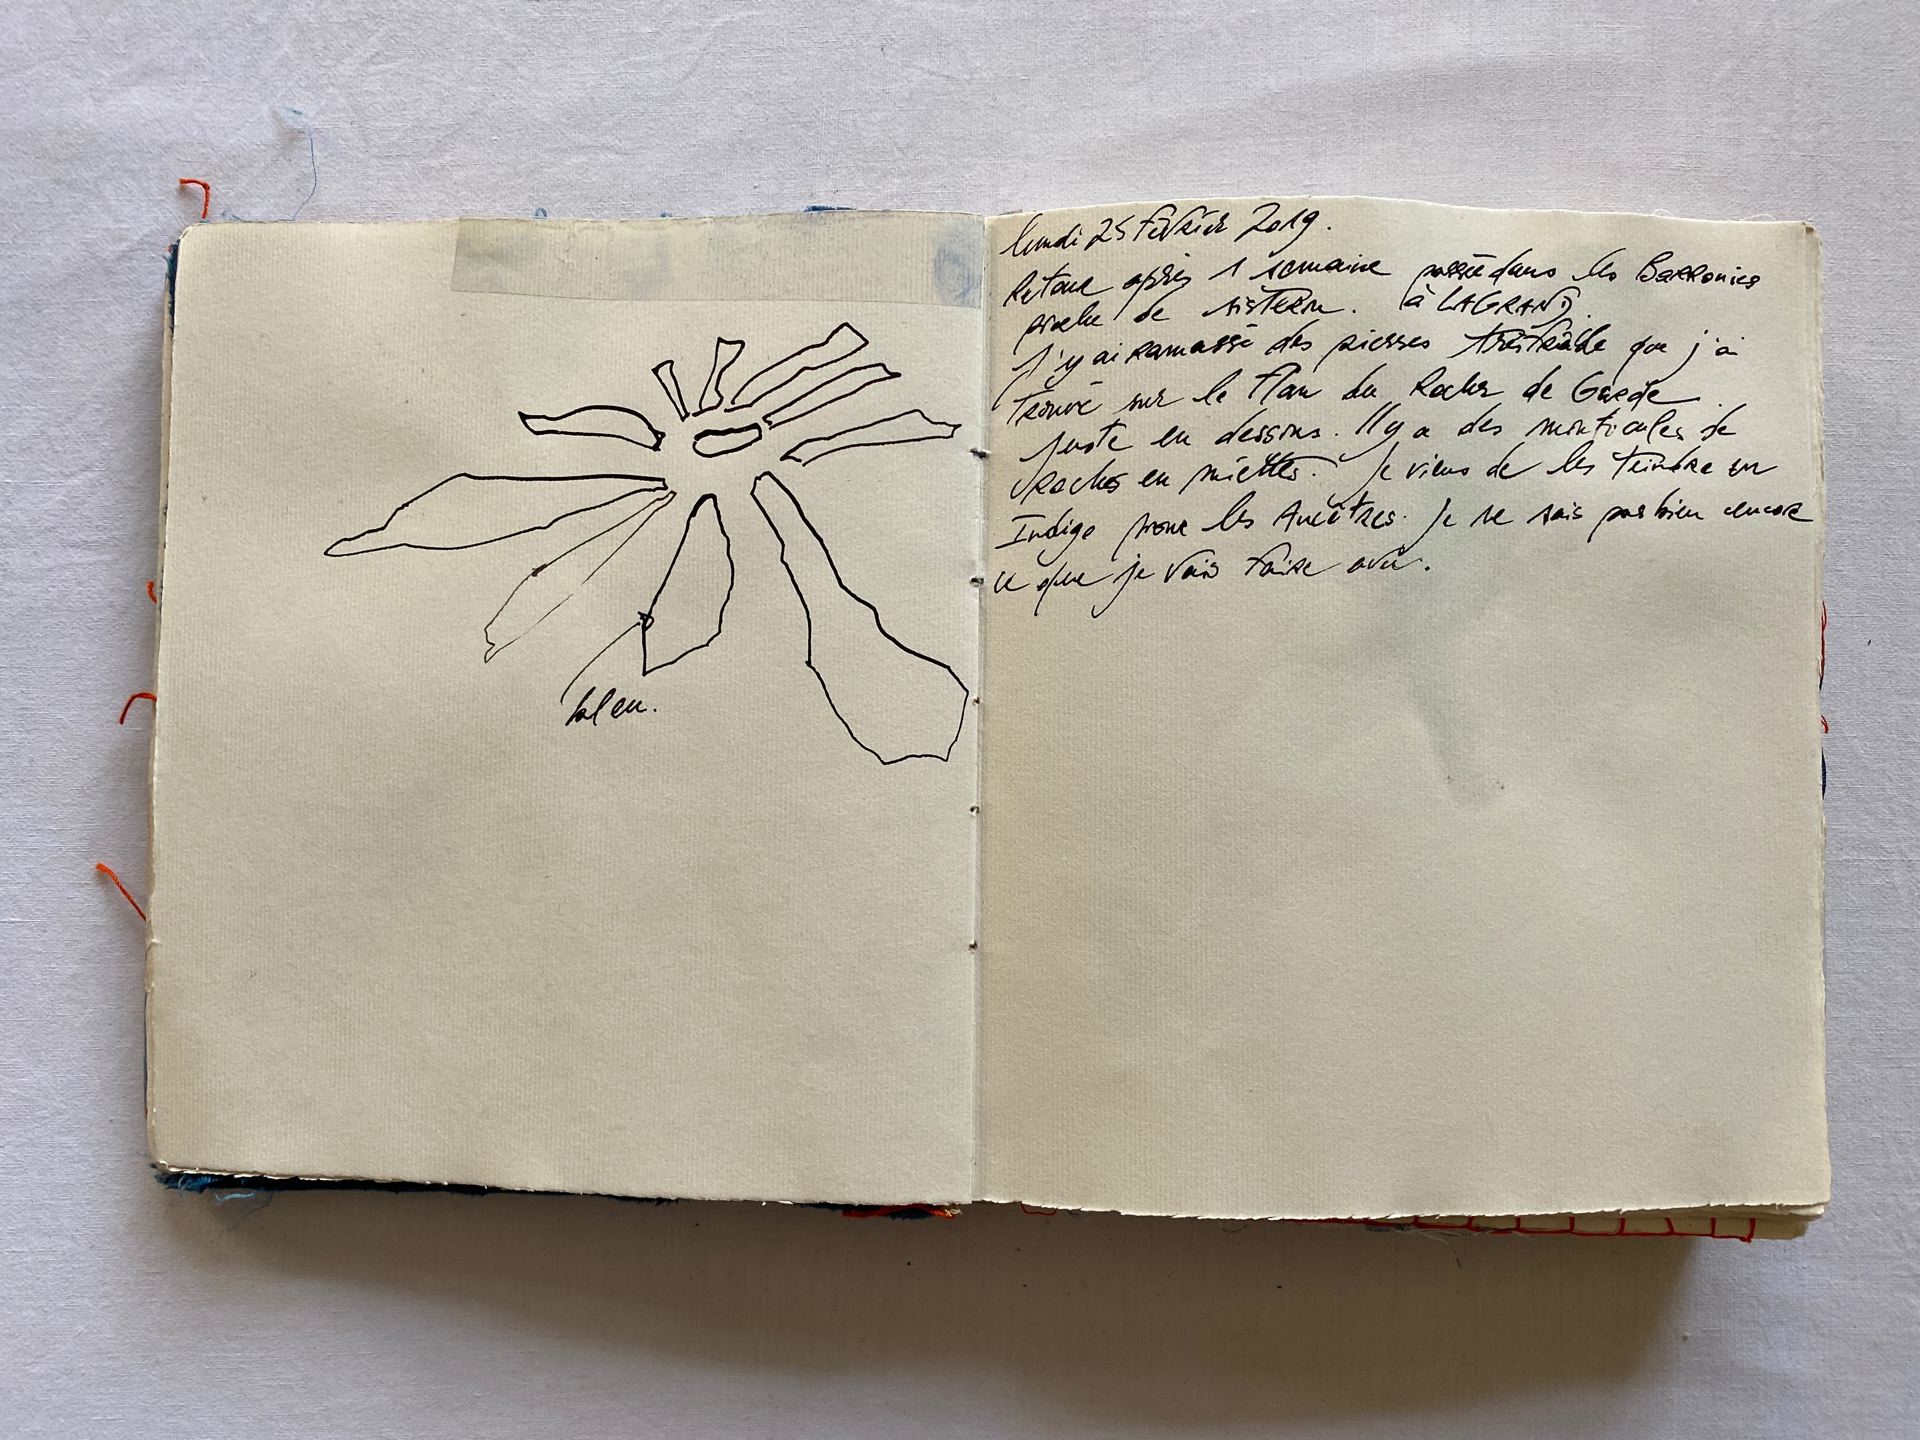 bleu.
lundi 25 février 2019.
Retour après 1 semaine passée dans les Barronies
proche de sisteron. à LAGRAND
J'y ai ramassé des pierres très friable que j'ai
trouvé sur le flan du Rocher de Garde
juste en dessous. Il y a des monticules de
Roches en miettes. Je viens de les teindre en
Indigo pour les Ancêtres. Je ne sais pas bien encore
ce que je vais faire avec.